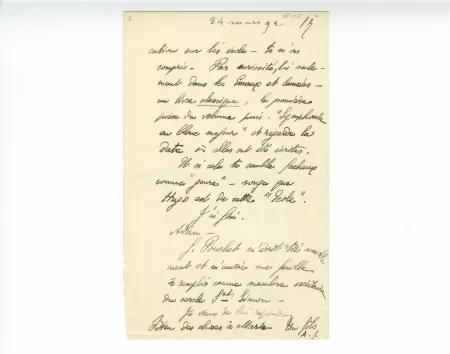 24 mars 92
15
cutive sur les vide – tu m'as
compris – Par curiosité, lis seule-
ment dans les Emaux et Camées –
un livre classique, la première
pièce du volume puis "Symphonie
en blanc majeur" et regarde la
date où elles ont été écrites.
Et si cela te semble fâcheux
comme "genre" – songe que
Hugo est de cette "Ecole".
J'ai fini.
Adieu –
J. Bouchot m'écrit très
ment et m'envoie une feuille
à remplir comme membre
du cercle St Simon –
Je viens de lui répondre
Bien des choses à Marthe Ton fils
A. J.